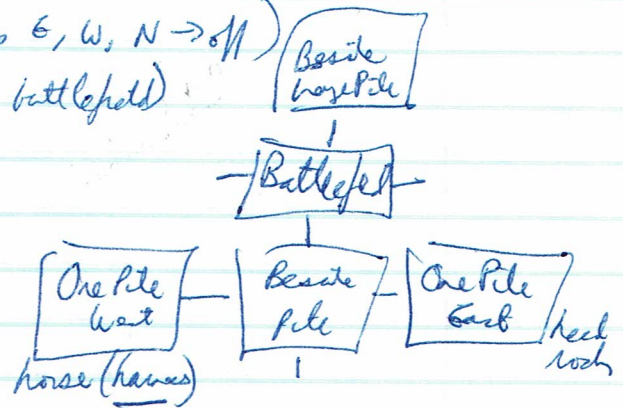 E, W, N → off)
battlefield)
Beside
Large Pile
Battlefield
Ore Pile
West
Beside
Pile
Ore Pile
East
horse (harness)
head